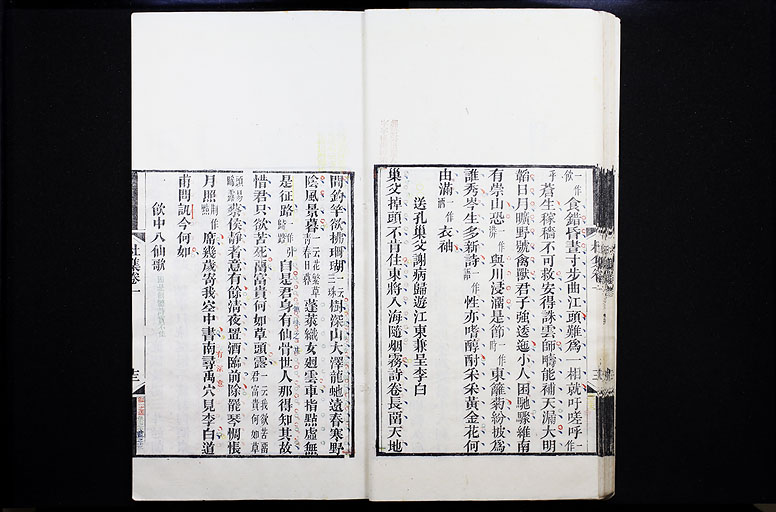 飲一作食錯昏晝寸步曲江頭難為一相就吁嗟呼一作
乎蒼生稼穡不可救安得誅雲師疇能補天漏大明
韜日月曠野號禽獸君子強逶迤小人困馳驟維南
有崇山恐與川浸溜是節一作時東籬菊紛披為
誰秀岑生多新詩性亦嗜醇酎采采黃金花何
由滿衣袖
送孔巢父謝病歸遊江東兼呈李白
巢父掉頭不肯住東將入海隨烟霧詩卷長留天地
間釣竿欲拂珊瑚樹深山大澤龍蛇遠春寒野
陰風景暮蓬萊織女迴雲車指點虛無
是征路自是君身有仙骨世人那得知其故
惜君只欲苦死留富貴何如草頭露
蔡侯靜者意有餘清夜置酒臨前除罷琴惆悵
月照席幾歲寄我空中書南尋禹穴見李白道
甫問訊今何如
飲中八仙歌
杜集卷一
十三